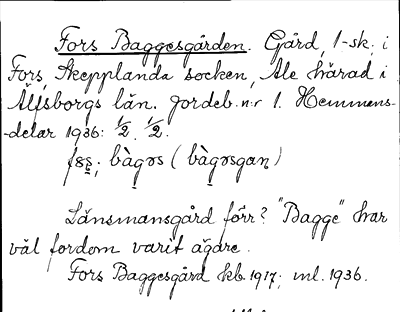 Fors Baggesgården. Gård, 1-sk, i
Fors, Skepplanda socken, Ale härad i
Älfsborgs län. Jordeb. n:r 1. Hemmens-
-delar 1936: 1/2. 1/2.
bàgɔs (bàgɔsgaɳ)
Länsmansgård förr? "Bagge" har
väl fordom varit ägare.
Fors Baggesgård kb. 1917; ml. 1936.